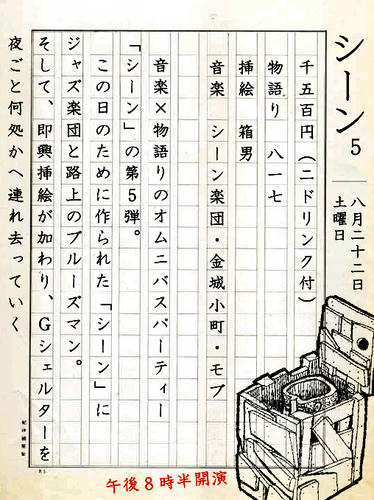 シーン5
八月二十二日
土曜日
千五百円(二ドリンク付)
物語り 八一七
挿絵 箱男
音楽 シーン楽団・金城小町・モブ
音楽×物語りのオムニバスパーティー
「シーン」の第5弾。
この日のために作られた「シーン」に
ジャズ楽団と路上のブルーズマン。
そして、即興挿絵が加わり、Gシェルターを
夜ごと何処かへ連れ去っていく
午後8時半開演